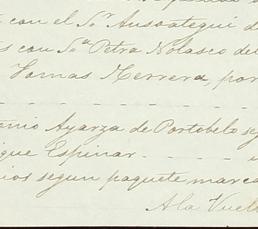 con el Sor Ansoategui d
s con Sora Petra Nolasco del
Tomas Herrera, por
onio Ayarza de Portobelo seg
ique Espinar
ios segun paquete marca
A la Vuel